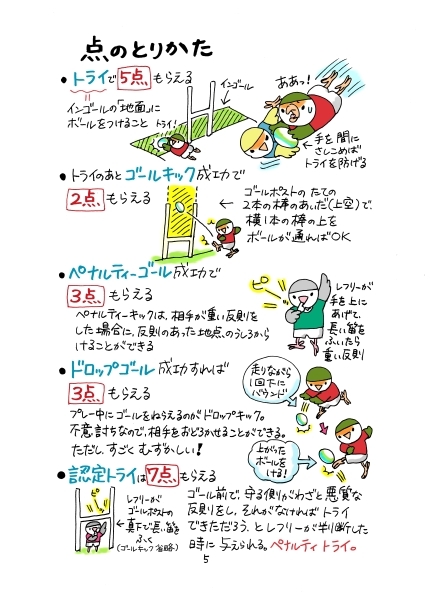 点のとりかた
● トライで 5点 もらえる
インゴールの「地面」に
ボールをつけること
トライ!
インゴール
ああっ!
手を間に
さしこめば
トライを防げる
● トライのあと ゴールキック成功で
2点 もらえる
← ゴールポストの たての
2本の棒のあいだ(上空)で、
横1本の棒の上を
ボールが通ればOK
● ペナルティーゴール成功で
3点 もらえる
ペナルティーキックは、相手が重い反則を
した場合に、反則のあった地点のうしろから
けることができる
ピーッ
レフリーが
手を上に
あげて、
長い笛を
ふいたら
重い反則
● ドロップゴール 成功すれば
3点 もらえる
プレー中にゴールをねらえるのがドロップキック。
不意討ちなので、相手をおどろかせることができる。
ただし、すごく むずかしい!
走りながら
1回下に
バウンド
上がった
ボールを
ける!
● 認定トライは 7点 もらえる
ピーッ
レフリーが
ゴールポストの
真下で長い笛を
ふく
(ゴールキック省略)
ゴール前で、守る側がわざと悪質な
反則をし、それがなければトライ
できただろう、とレフリーが判断した
時に与えられる。ペナルティトライ。
5